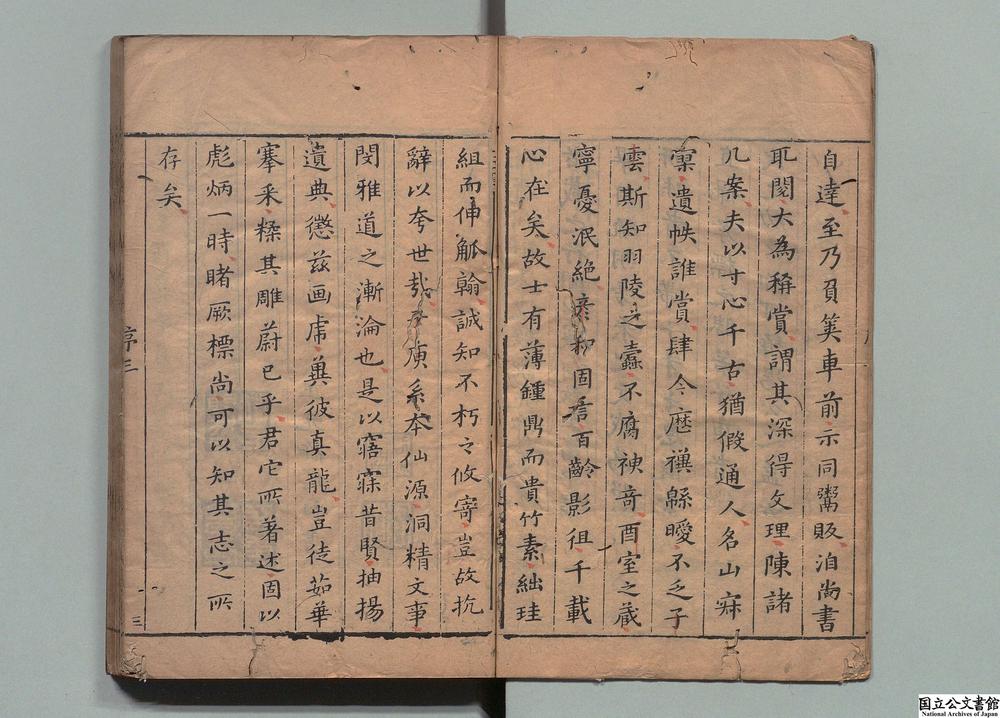 自達至乃負笈車前示同鬻販洎尚書
耴閱大為稱賞謂其深得文理陳諸
几案夫以寸心千古猶假通人名山寐
遺帙誰賞肆今歷禩緜曖不乏子
雲斯知羽陵之蠹不腐
酉室之蔵
寧憂泯絶
固
百齡影徂千載
心在矣故士有薄鍾鼎而貴竹素絀珪
組而伸觚翰誠知不朽之攸寄豈故抗
辭以夸世㢤
系本仙源洞精文事
閔雅道之漸淪也是以寤寐昔賢抽揚
遺典懲茲画虎冀彼真龍豈徒茹華
搴采糅其雕蔚已乎君它所著述固以
彪炳一時睹厥標尚可以知其志之所
存矣
序三
三
国立公文書館
National Archives of Japan